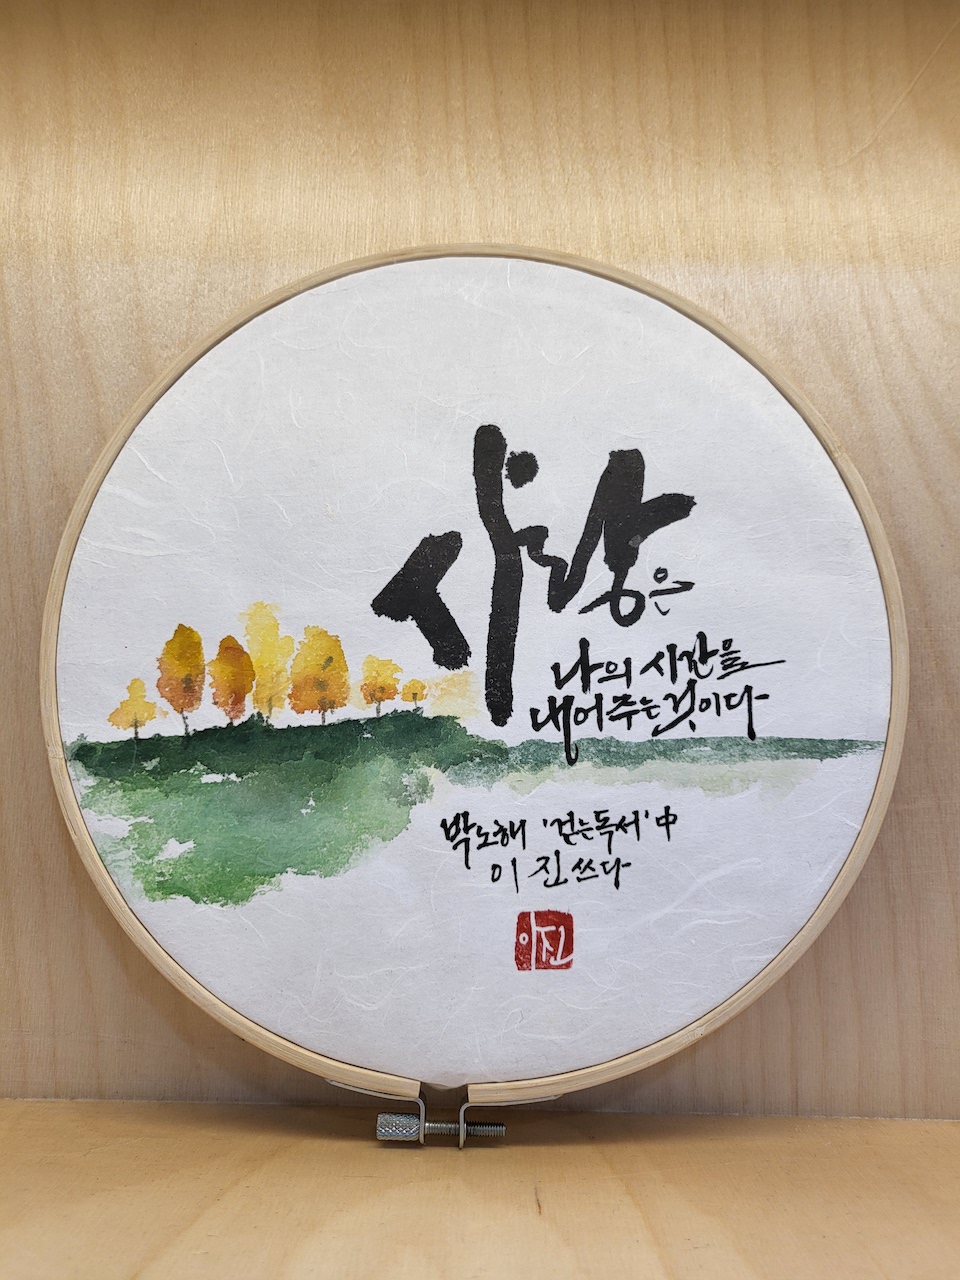 사랑은
나의 시간을
내어주는 것이다
박노해 '걷는독서' 中
이진 쓰다
이진